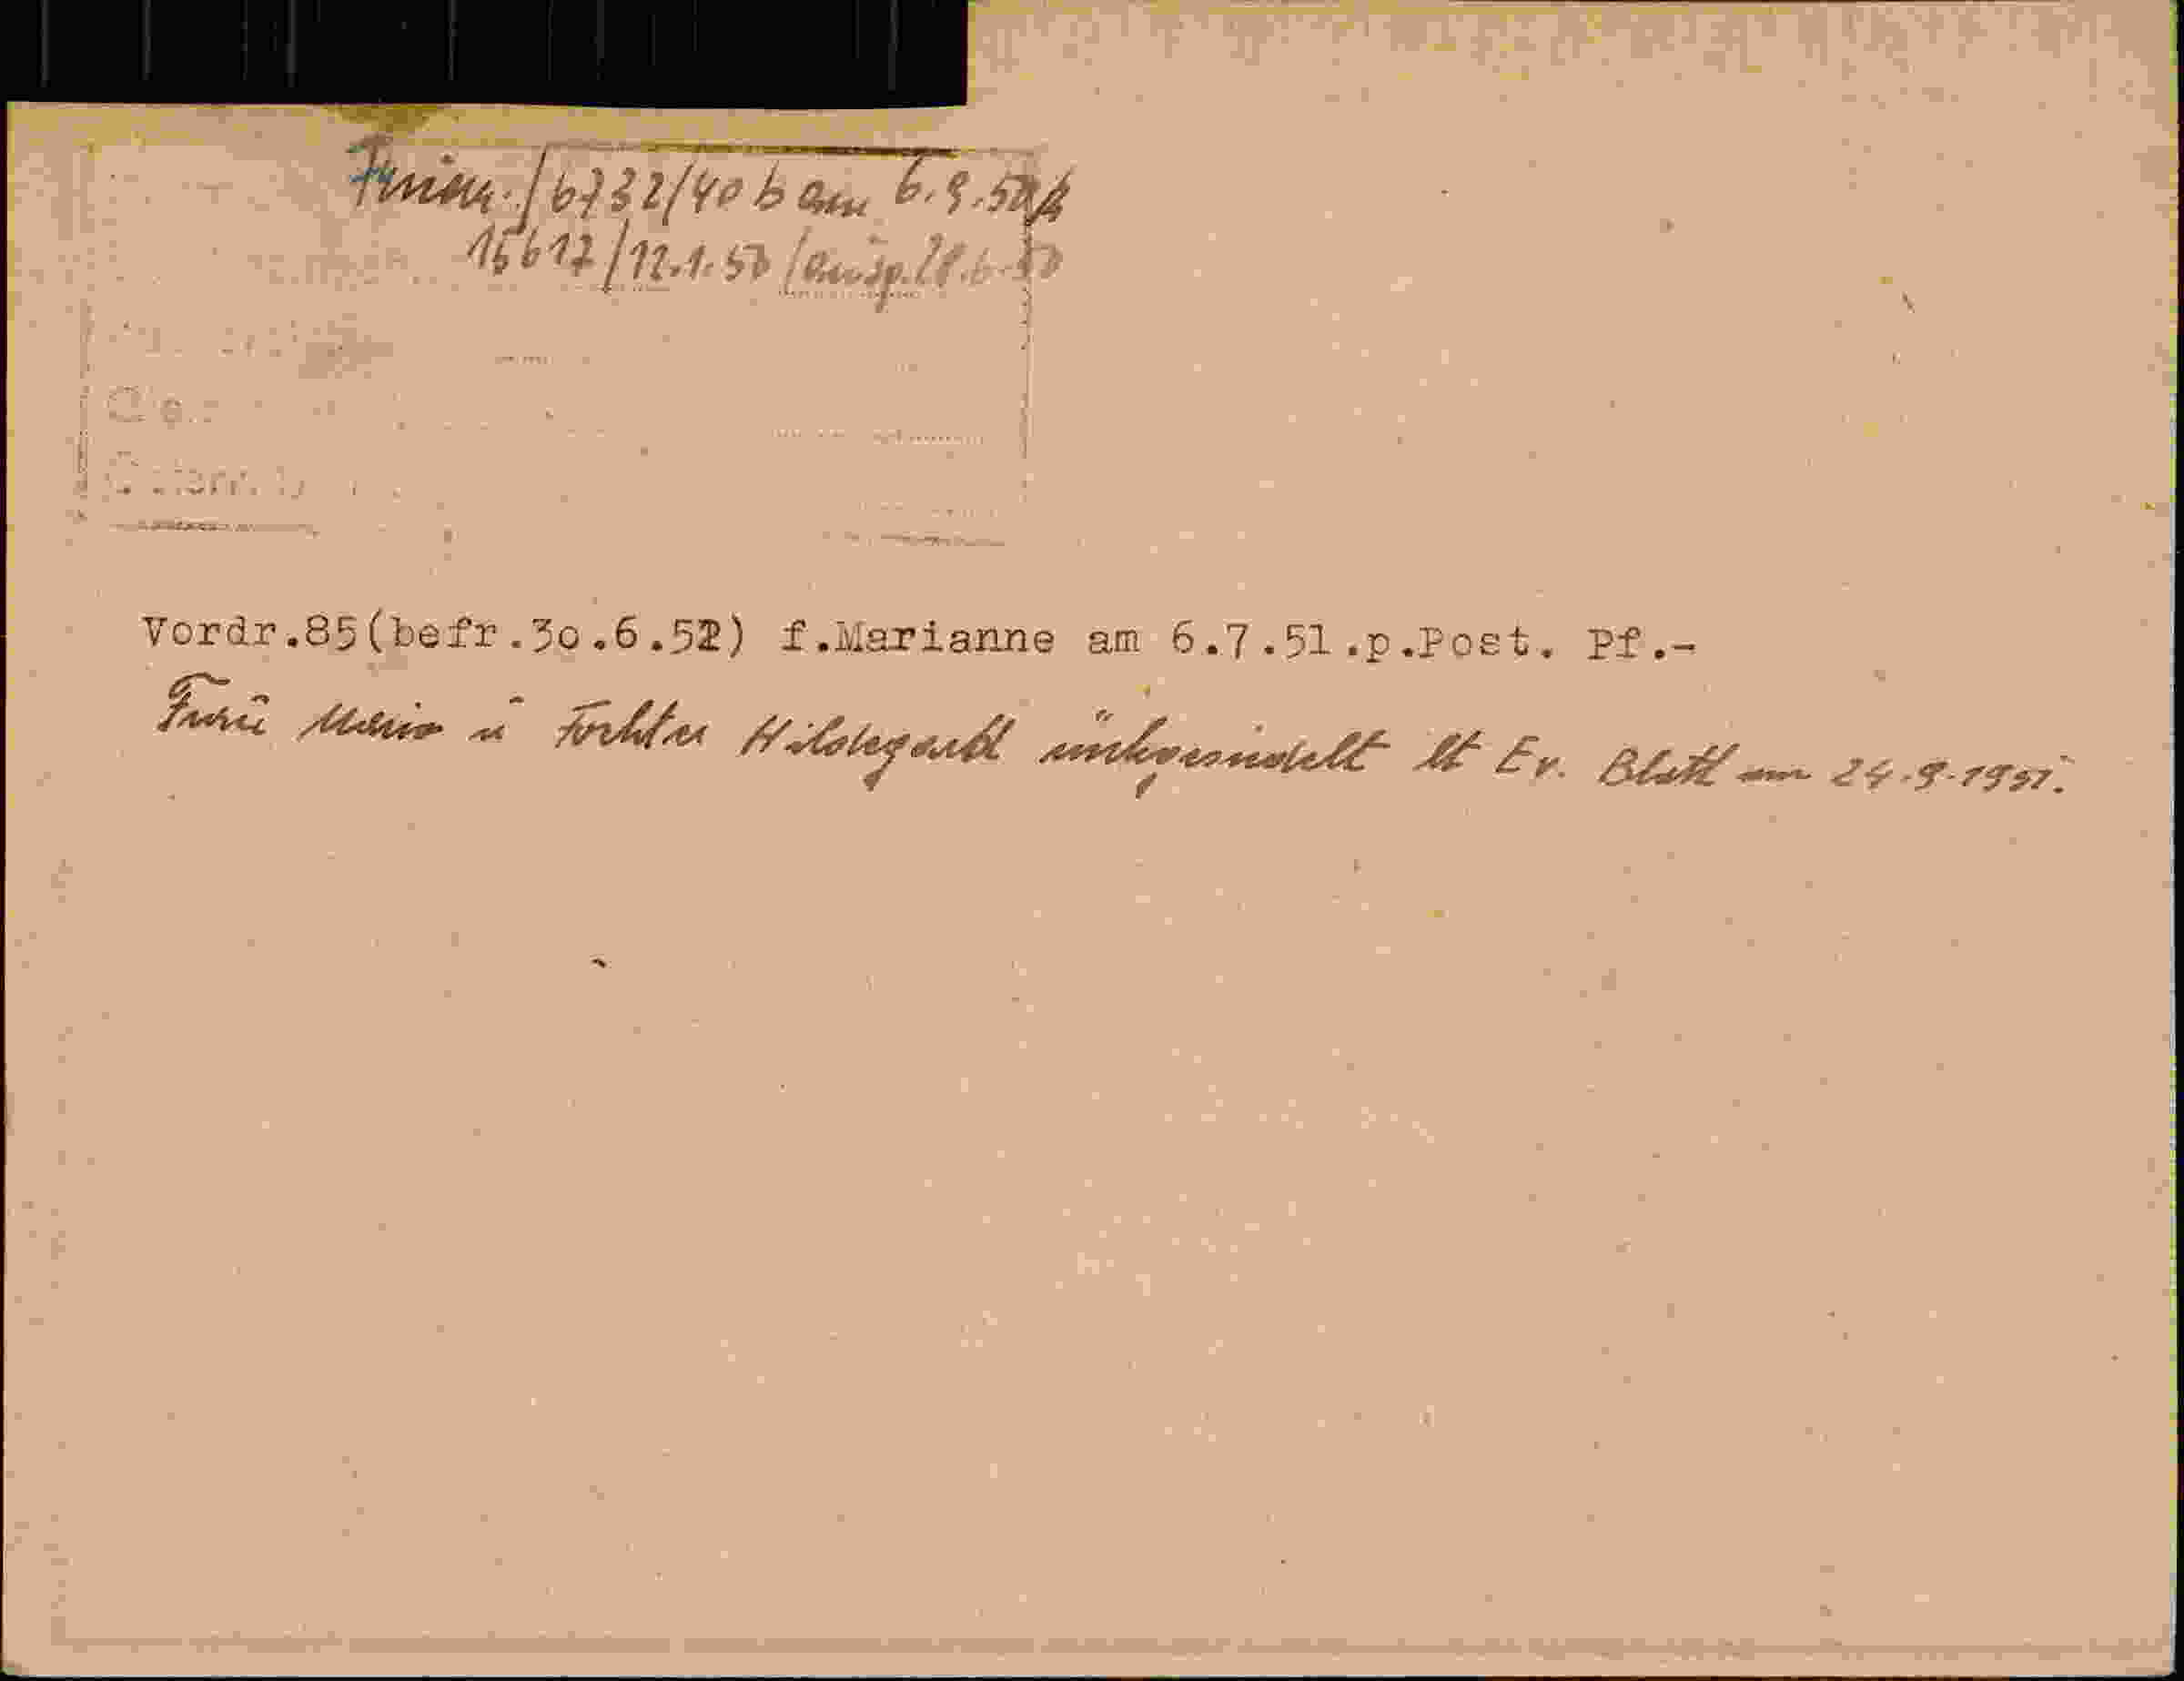 6732/40 b am 6.9.50
15617/12.1.50/
Vordr.85(befr.30.6.52) f.Marianne am 6.7.51.p.Post. Pf.-
Frau Maria u Tochter Hildegard umgesiedelt lt Ev. Blatt am 24.9.1951.